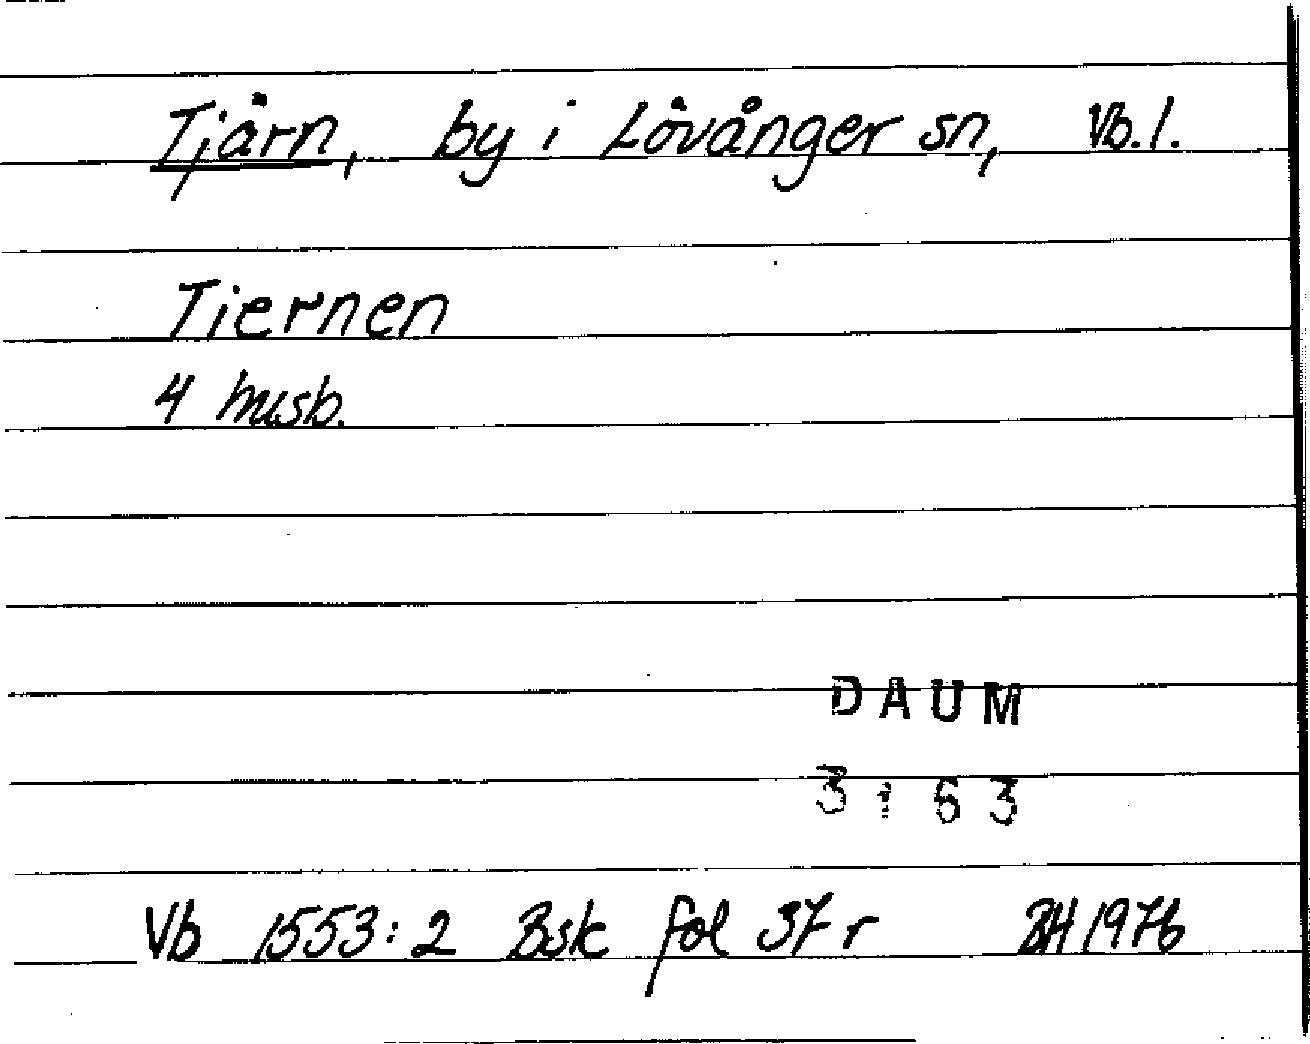 Tjärn, by i Lövånger sn, Vb. l.
Tiernen
4 husb.
DAUM
3163
Vb 1553:2 Bsk fol 37 r BH 1976